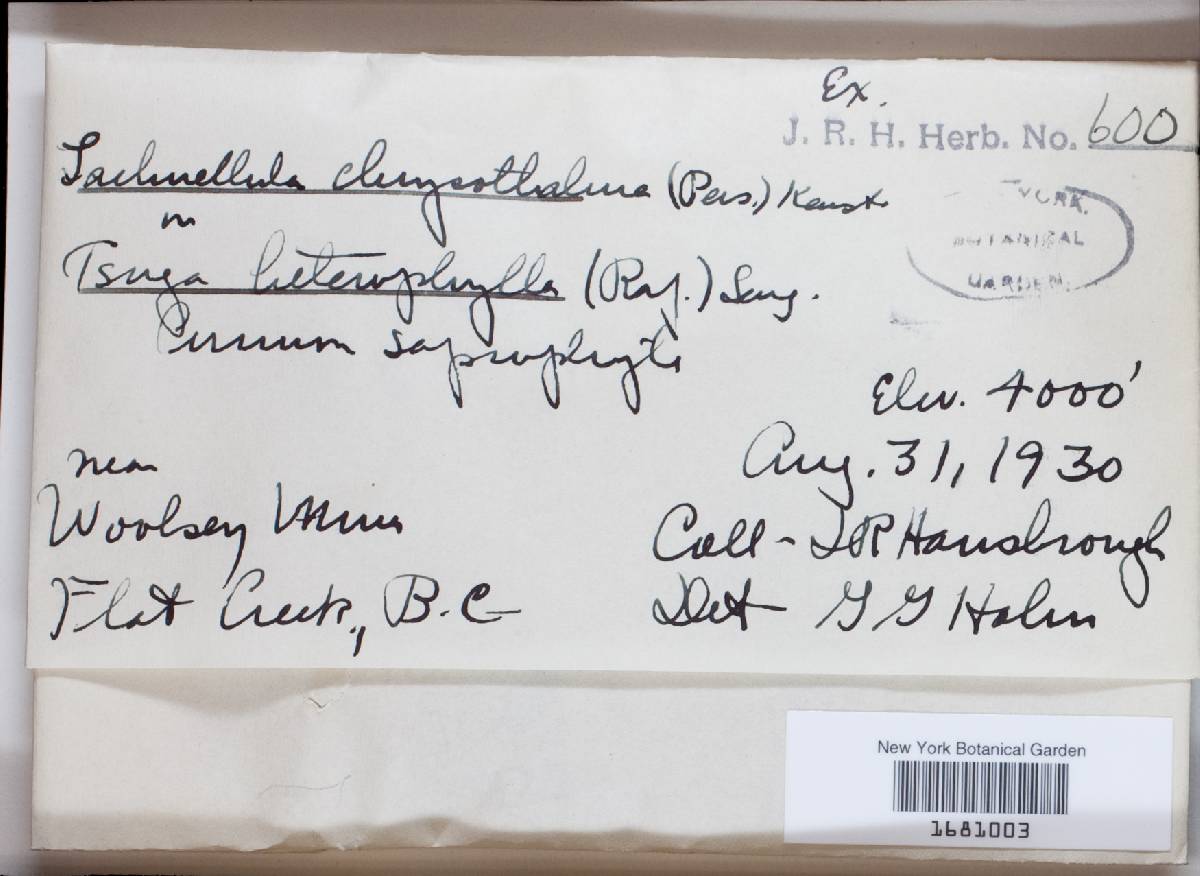 Ex.
J. R. H. Herb. No. 600
Lachnellula chrysothalma (Pers.) Karst
on
Tsuga heterophylla (Raf.) Sarg.
Common saprophyte
YORK
BOTANICAL
GARDEN.
Elev. 4000'
Aug. 31, 1930
near
Woolsey Mine
Coll - JR Hansbrough
Flat Creek, B.C
Det G G Hahn
New York Botanical Garden
1681003